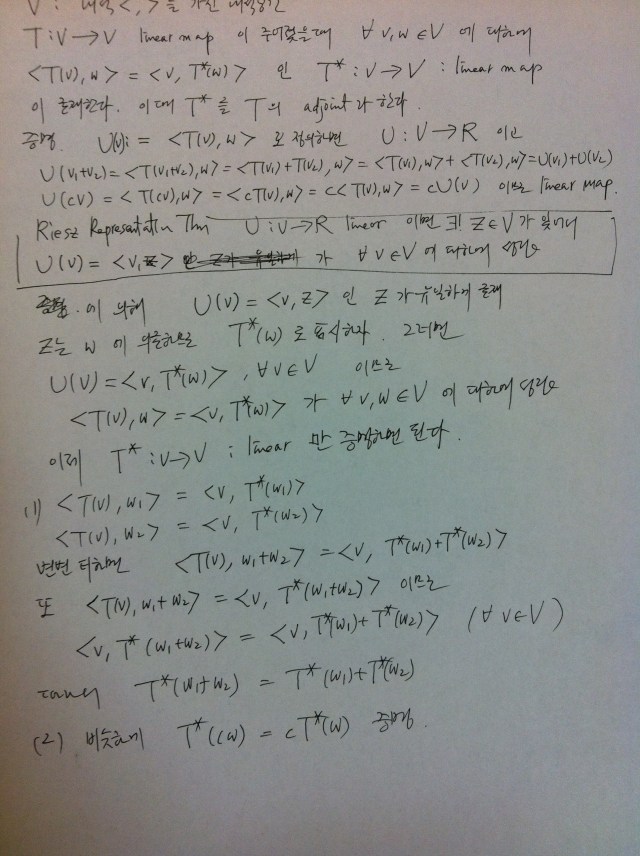 V : 내적 < , > 을 가진 내적공간
T : V → V linear map 이 주어졌을때 ∀ v, w ∈ V 에 대하여
<T(v), w> = <v, T*(w)> 인 T* : V → V : linear map
이 존재한다. 이때 T* 를 T 의 adjoint 라 한다.
증명. U(v) := <T(v), w> 로 정의하면 U : V → R 이고
U(v₁+v₂) = <T(v₁+v₂), w> = <T(v₁)+T(v₂), w> = <T(v₁), w> + <T(v₂), w> = U(v₁)+U(v₂)
U(cv) = <T(cv), w> = <cT(v), w> = c<T(v), w> = cU(v) 이므로 linear map.
Riesz Representation Thm U : V → R linear 이면 ∃! z ∈ V 가 있어서
U(v) = <v, z> 가 ∀ v ∈ V 에 대하여 성립
에 의해 U(v) = <v, z> 인 z 가 유일하게 존재
z는 w 에 의존하므로 T*(w) 로 표시하자. 그러면
U(v) = <v, T*(w)>, ∀ v ∈ V 이므로
<T(v), w> = <v, T*(w)> 가 ∀ v, w ∈ V 에 대하여 성립
이제 T* : V → V ; linear 만 증명하면 된다.
(1) <T(v), w₁> = <v, T*(w₁)>
<T(v), w₂> = <v, T*(w₂)>
변변 더하면 <T(v), w₁+w₂> = <v, T*(w₁)+T*(w₂)>
또 <T(v), w₁+w₂> = <v, T*(w₁+w₂)> 이므로
<v, T*(w₁+w₂)> = <v, T*(w₁)+T*(w₂)> (∀ v ∈ V)
따라서 T*(w₁+w₂) = T*(w₁)+T*(w₂)
(2) 비슷하게 T*(cw) = cT*(w) 증명.